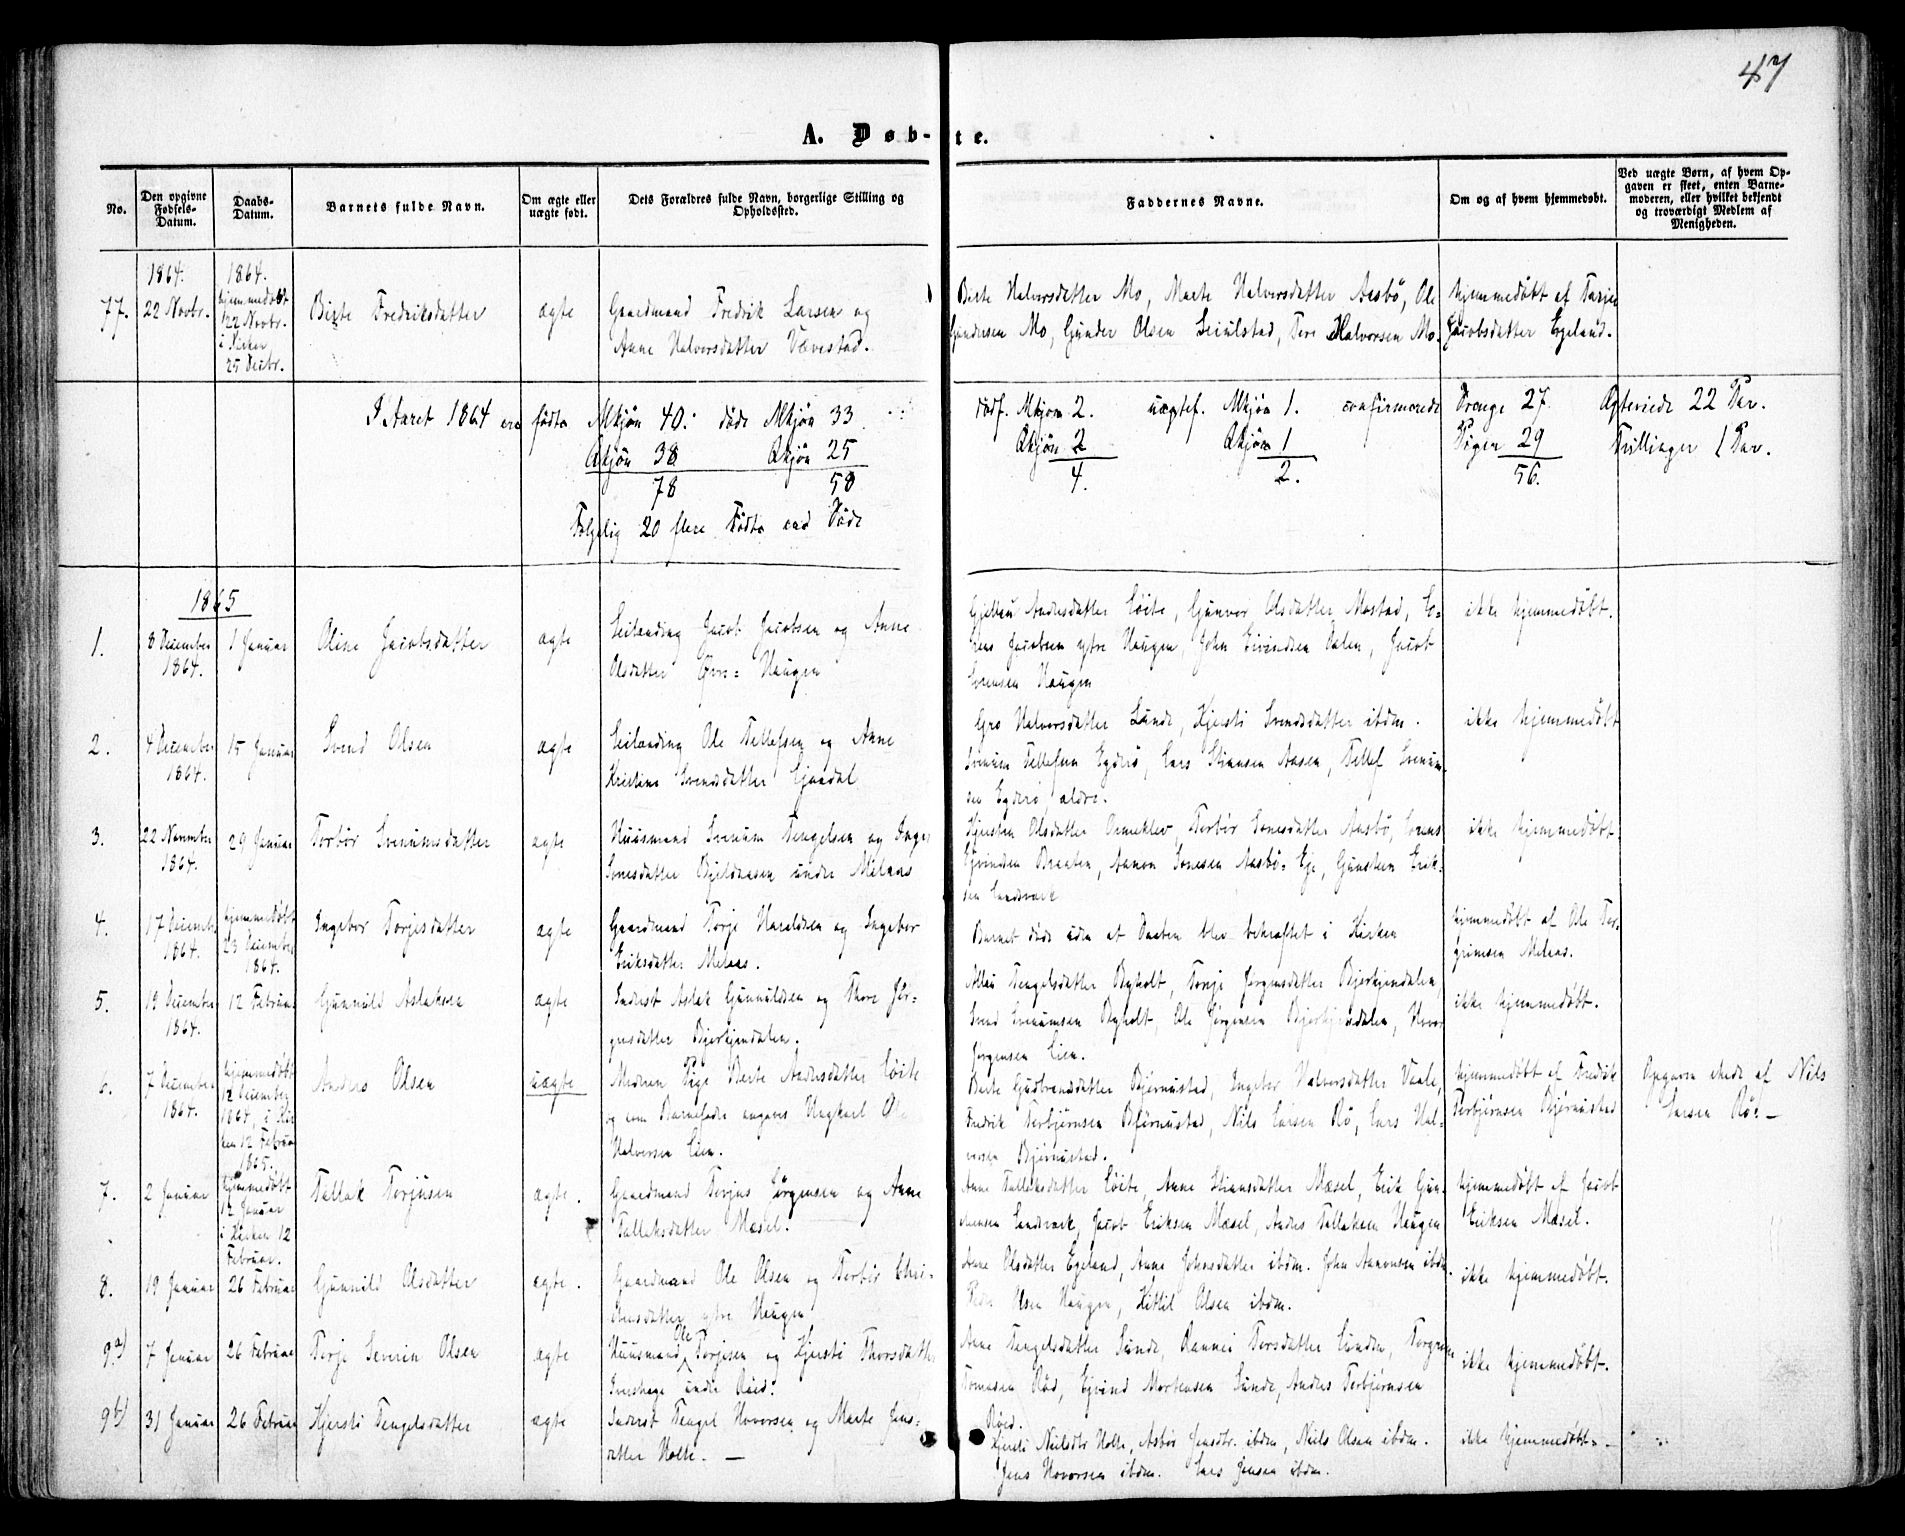 47
A. Døb-te.
No.
Den opgivne
Fødsels-
Datum.
Daabs-
Datum.
Barnets fulde Navn.
Om ægte eller
uægte født.
Dets Forældres fulde Navn, borgerlige Stilling og
Opholdssted.
Faddernes Navne.
Om og af hvem hjemmedøbt.
Ved uægte Børn, af hvem Op-
gaven er skeet, enten Barne-
moderen, eller hvilket bekjendt
og troværdigt Medlem af
Menigheden.
1864.
1864.
77.
22 Novbr.
hjemmedøbt
22 Novbr.
i Kirken
25 Decbr.
Birte Fredriksdatter
ægte
Gaardmand Fredrik Larsen og
Anne Halvorsdatter Vævestad.
Birte Halvorsdatter Mo, Marte Halvorsdatter Aasbø, Ole
Gundersen Mo, Gunder Olsen, Halvorsen Mo.
hjemmedøbt af Torjer
Jacobsdatter Egeland.
I Aaret 1864 ere fødte Mkjøn 40: døde Mkjøn 33
Qkjøn 38 Qkjøn 25
78 58
Følgelig 20 flere Fødte end Døde
dødf. Mkjøn 2. uægtef. Mkjøn 1. confirmerede Drenge 27. Egteviede 22 Par.
Qkjøn 2 Qkjøn 1 Pigen 29 Tvillinger 1 Par.
4. 2. 56.
1865
1.
8 December
1864.
1 Januar
Oline Jacobsdatter
ægte
Leilænding Jacob Jacobsen og Anne
Olsdatter Haugen
Andersdatter Løite, Gunvor Olsdatter Mostad,
Jacobsen ytre Haugen, John Eivindsen Dalen, Jacob
Sørensen Haugen
ikke hjemmedøbt.
2.
4 December
1864.
15 Januar
Svend Olsen
ægte
Leilænding Ole Tellefsen og Anne
Kristine Svendsdatter
Gro Halvorsdatter Lunde, Kjersti Svendsdatter ibdm.
Tellefsen, Lars Stiansen Aasen, Tellef
ældre.
ikke hjemmedøbt
3.
22 November
1864.
29 Januar
Torbør Svenumsdatter
ægte
Huusmand Svenum Tengelsen og Inger
Sonesdatter under Melaas
Kjersten Olsdatter, Torbør Sonesdatter Aasbø,
Eivindsen Braaten, Aanon Sonesen Aasbø-Eje, Gunsten Erik-
sen Landsverk
ikke hjemmedøbt.
4.
17 December
1864.
hjemmedøbt
23 December
1864.
Ingebor Torjesdatter
ægte
Gaardmand Torje Haraldsen og Ingebor
Eriksdatter Melaas.
Barnet døde uden at Daaben blev bekræftet i Kirken
hjemmedøbt af Ole Tor-
grimsen Melaas.
5.
19 December
1864.
12 Februar
Gunnild Aslaksen
ægte
Inderst Aslak Gunnuldsen og Thore Jør-
gensdatter Bjerkjendalen.
Tengelsdatter Byholt, Torje Jørgensdatter Bjerkjendalen,
Svend Svenumsen Byholt, Ole Jørgensen Bjerkjendalen, Hover
Jørgensen Lien.
ikke hjemmedøbt.
6.
7 December
1864.
hjemmedøbt
12 December
1864, i Kir-
ken 12 Februar
1865.
Anders Olsen
uægte
Moderen Pige Berte Andersdatter Løite
og som Barnefader angives Ungkarl Ole
Halvorsen Lien.
Berte Gudbrandsdatter Bjørnustad, Ingebor Halvorsdatter Vaale,
Fredrik Torbjørnsen Bjørnustad, Nils Larsen Rø, Lars Hal-
vorsen Bjørnustad.
hjemmedøbt af Fredrik
Torbjørnsen Bjørnustad
Opgaven skede af Nils
Larsen Rø.
7.
2 Januar
hjemmedøbt
12 Januar
i Kirken 12
Februar.
Tallak Torjusen
ægte.
Gaardmand Torjus Jørgensen og Anne
Tallaksdatter Mæsel.
Anne Tallaksdatter Løite, Anne Stiansdatter Mæsel, Erik Gun-
stensen Landsverk, Jacob Eriksen Mæsel, Anders Tallaksen Haugen
hjemmedøbt af Jacob
Eriksen Mæsel.
8.
19 Januar
26 Februar
Gunnild Olsdatter
ægte.
Gaardmand Ole Olsen og Torbør Chri-
stensdatter ytre Haugen
Anne Olsdatter Egeland, Anne Johnsdatter ibdm. John Aanonsen ibdm.
Olsen Haugen, Kittil Olsen ibdm.
ikke hjemmedøbt.
9a)
7 Januar
26 Februar
Torje Severin Olsen
ægte
Huusmand Ole Torjesen og Kjersti Thorsdatter
under Røed.
Anne Tengelsdatter Sunde, Torsdatter,
Tomasen Røed, Ejvind Mortensen Sunde, Anders Torbjørnsen
Røed.
ikke hjemmedøbt.
9b)
31 Januar
26 Februar
Kjersti Tengelsdatter
ægte
Inderst Tengel Hoversen og Marte Jens-
datter Holte.
Kjersti Neilsdtr Holte, Asbør Jensdtr. ibdm, Niels Olsen ibdm.
Jens Hoversen ibdm. Lars Jensen ibdm.
ikke hjemmedøbt.